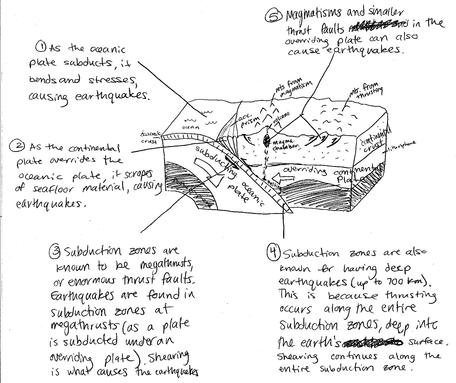 ① As the oceanic
plate subducts, it
bends and stresses,
causing earthquakes.
⑤ Magmatisms and smaller
thrust faults in the
overriding plate can also
cause earthquakes.
② As the continental
plate overrides the
oceanic plate, it scrapes
of seafloor material, causing
earthquakes.
ocean
acc.
prism
mts from
magmatism
volcano
mtn. from
thrusting
magma
chamber
crust
continental
crust
subducting oceanic
plate
overriding continental
Plate
③ Subduction zones are
known to be megathrusts,
or enormous thrust faults.
Earthquakes are found in
subduction zones at
megathrusts (as a plate
is subducted under an
overriding plate). Shearing
is what causes the earthquakes
④ Subduction zones are also
known for having deep
earthquakes (up to 700 km).
This is because thrusting
occurs along the entire
subduction zones, deep into
the earth's surface.
Shearing continues along the
entire subduction zone.